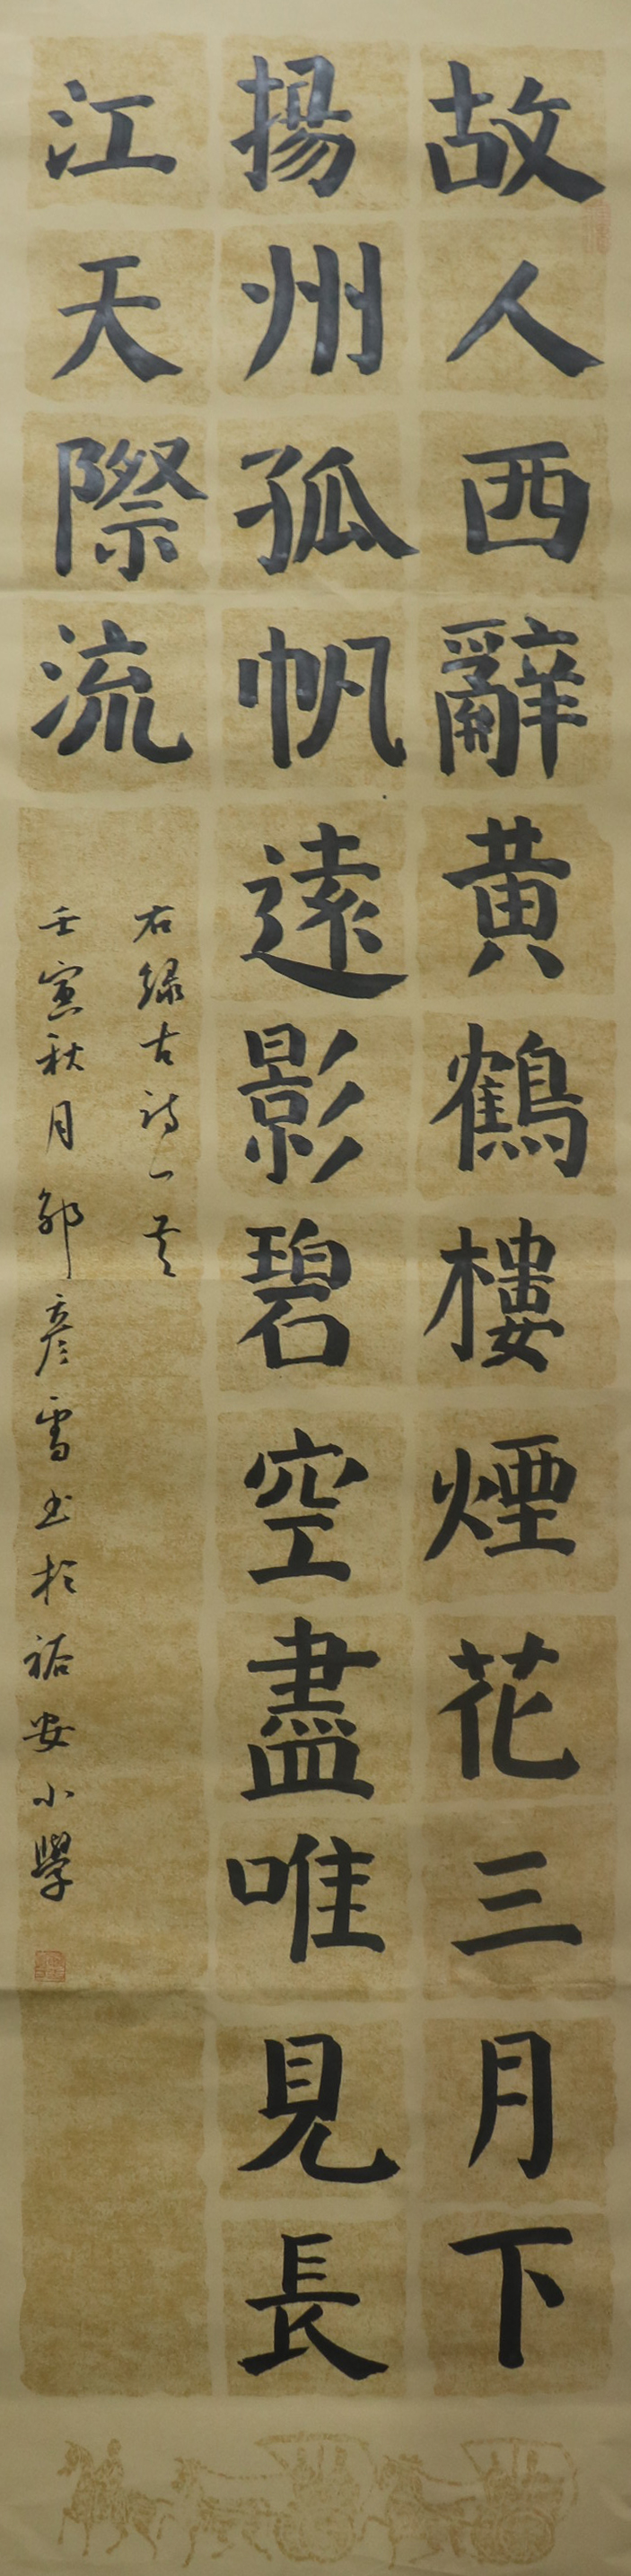 故人西辭黃鶴樓煙花三月下
揚州孤帆遠影碧空盡唯見長
江天際流
右録古詩一首
壬寅秋月邹彦雪书於裕安小學